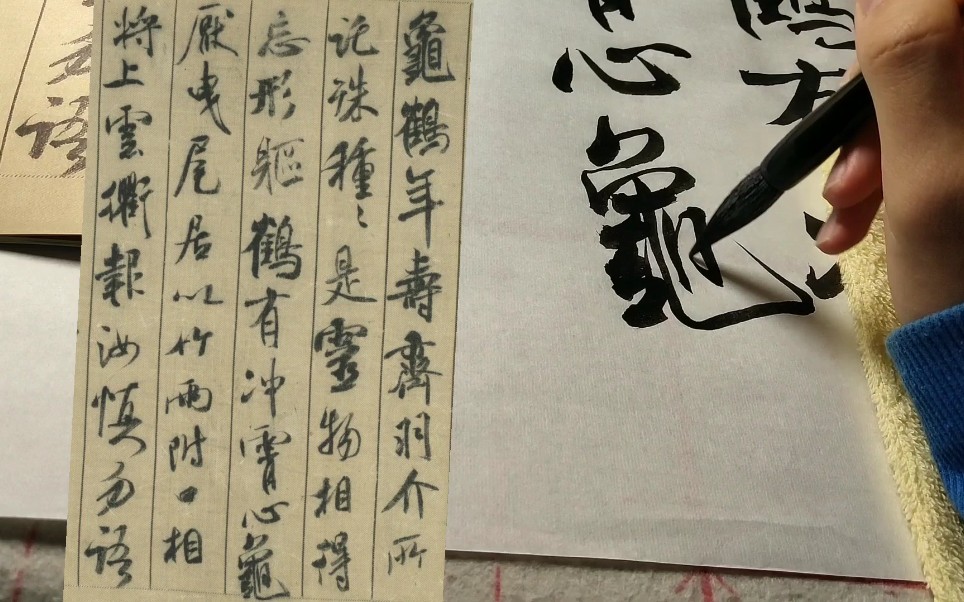 龜鶴年壽齊羽介所
託殊種〻是靈物相得
忘形軀鶴有冲霄心龜
厭曳尾居以竹兩附口相
將上雲衢報汝慎勿語
心龜
語